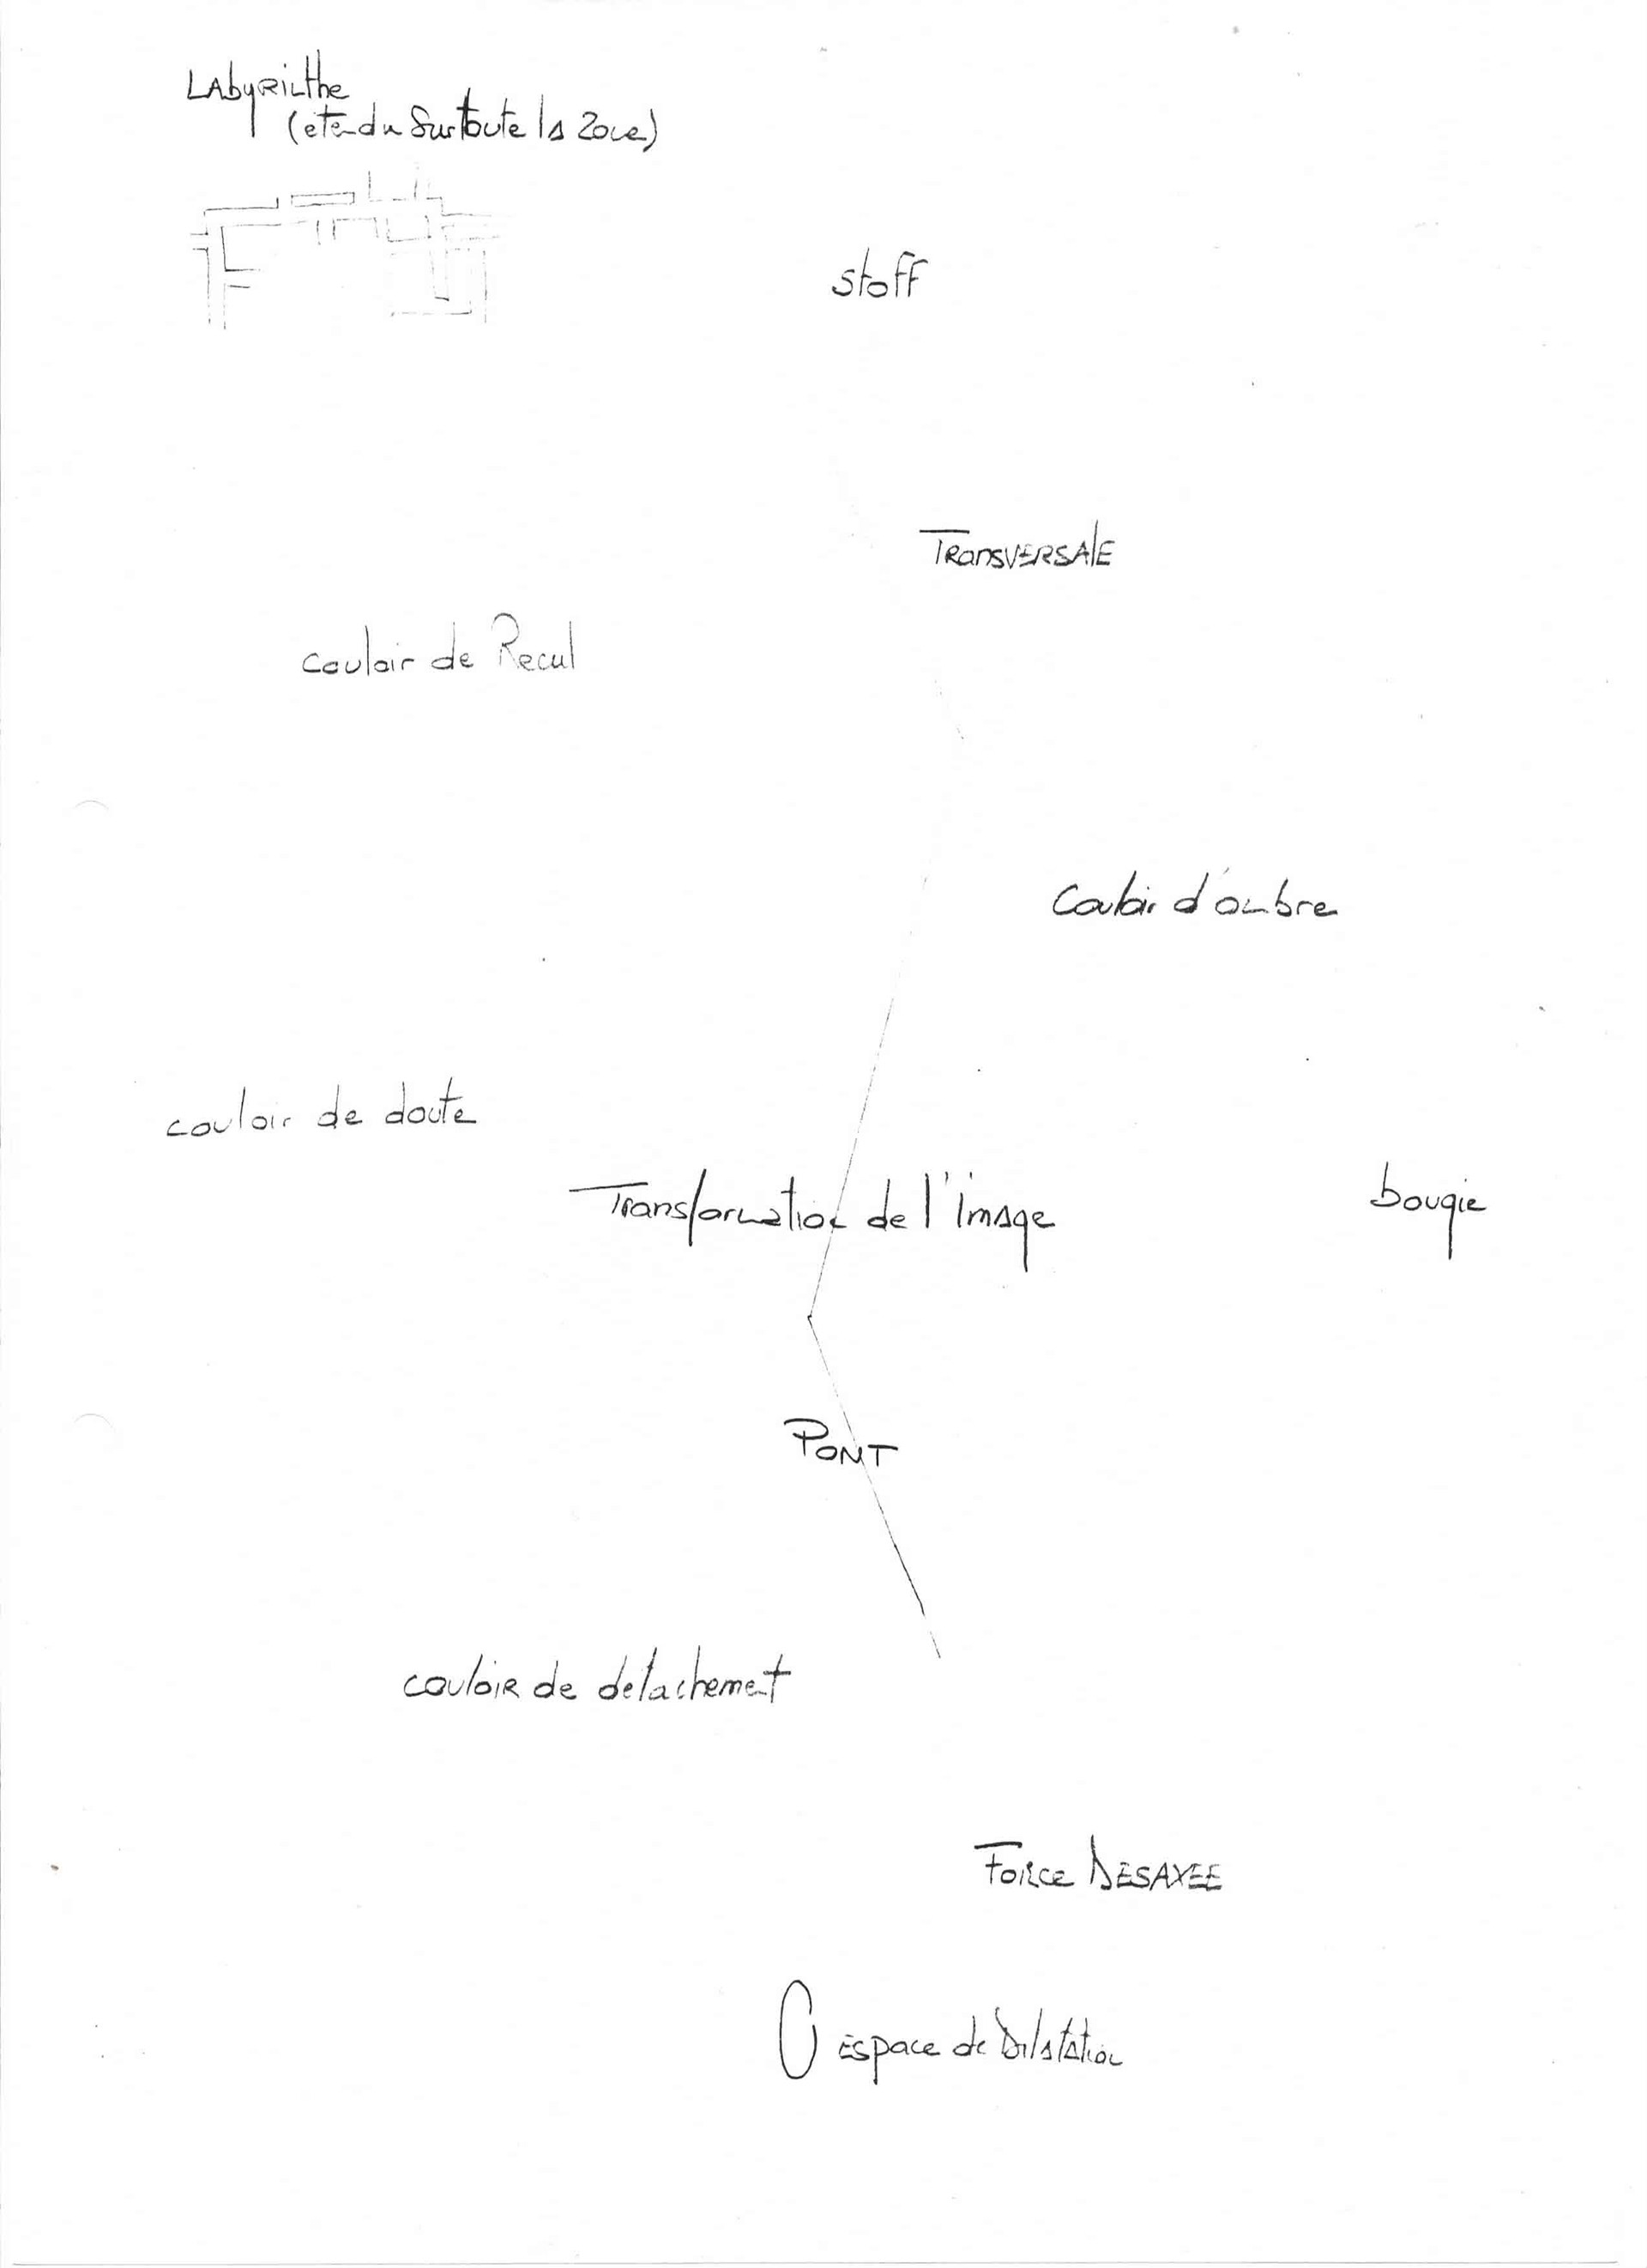 Labyrinthe
(étendu sur toute la zone)
stoff
TransVERSAlE
couloir de Recul
Couloir d'ombre
couloir de doute
Transformation de l'image
bougie
PONT
couloir de détachement
Force DÉSAXÉE
Espace de Dilatation